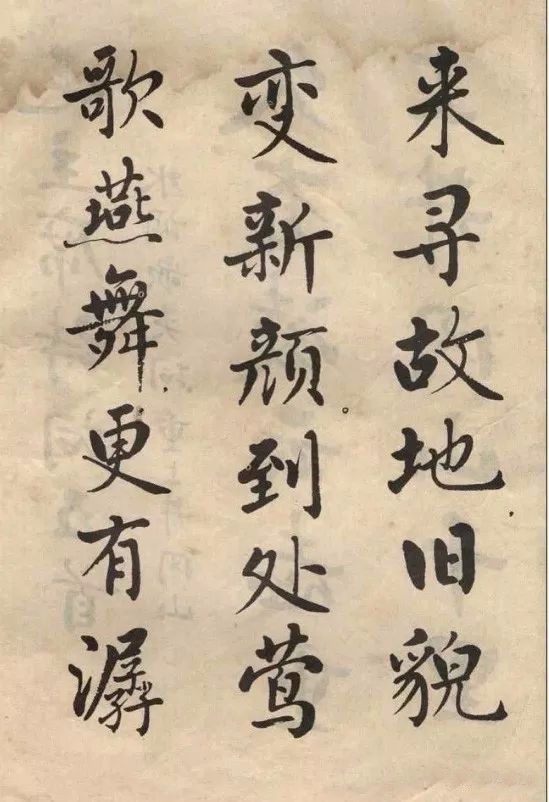 来寻故地.旧貌
变新颜。到处莺
歌燕舞.更有潺